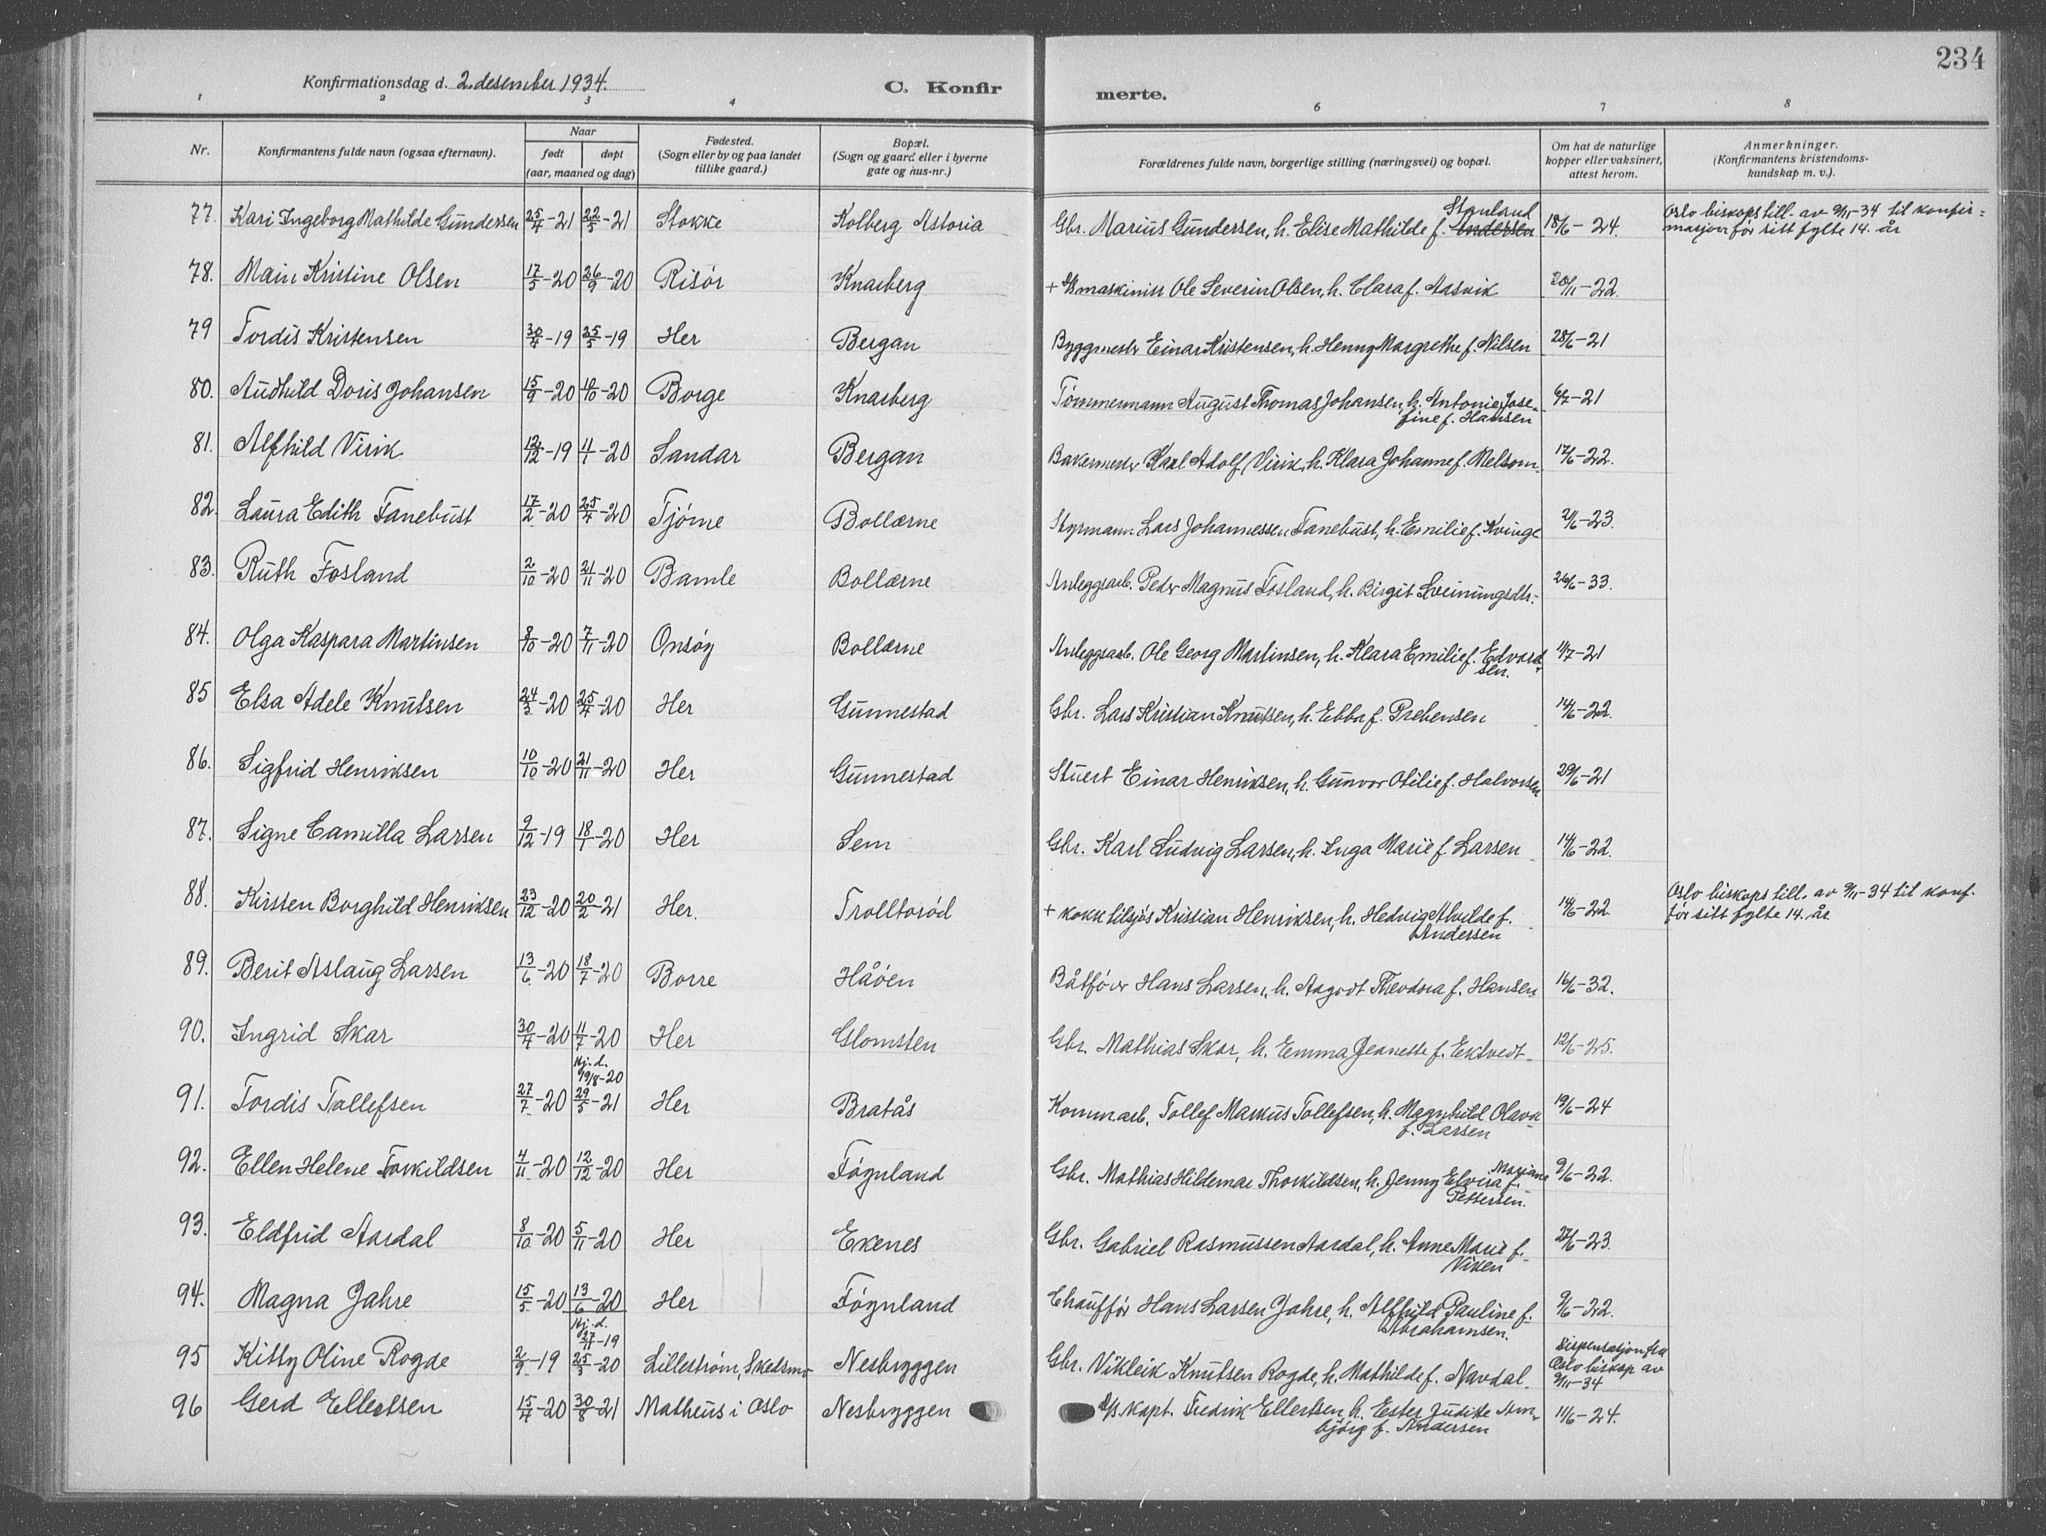 234
Konfirmationsdag d. 2. desember 1934. C. Konfirmerte.
1 2 3 4 6 7 8
Nr. Konfirmantens fulde navn (ogsaa efternavn). Naar født døpt (aar, maaned og dag) Fødested. (Sogn eller by og paa landet tillike gaard.) Bopæl. (Sogn og gaard eller i byerne gate og hus-nr.) Forældrenes fulde navn, borgerlige stilling (næringsvei) og bopæl. Om hat de naturlige kopper eller vaksinert, attest herom. Anmerkninger. (Konfirmantens kristendoms-kundskap m. v.).
77. Kari Ingeborg Mathilde Gundersen 25/4-21 22/5-21 Stokke Kolberg Astoria Gbr. Marius Gundersen, h. Elise Mathilde f. Andersen 18/6-24. Oslo biskops till. av 9/11-34 til konfir=
masjon før sitt fylte 14. år
78. Main Kristine Olsen 17/5-20 26/9-20 Risør Knarberg + maskinist Ole Severin Olsen, h. Clara f. Aasvik 20/11-22.
79 Tordis Kristensen 30/4-19 25/5-19 Her Bergan Byggmestr Einar Kristensen, h. Henny Margrethe f. Nilsen 28/6-21
80. Audhild Doris Johansen 15/9-20 /10-20 Borge Knarberg Tømmermann August Thomas Johansen, h. Antonie Jose-
fine f. Hansen 6/7-21
81. Alfhild Virik 12/12-19 4/1-20 Sandar Bergan Bakermestr Karl Adolf Virik, h. Klara Johanne f. Melsom. 17/6-22.
82. Laura Edith Fanebust 17/2-20 25/4-20 Tjøme Bollærne Styrmann Lars Johannessen Fanebust, h. Emilie f. Kvinge 21/6-23.
83. Ruth Fosland 2/10-20 21/11-20 Bamle Bollærne Anleggsarb. Peder Magnus Fosland, h. Birgit Sveinungsdtr. 26/6-33.
84. Olga Kaspara Martinsen 8/10-20 7/11-20 Onsøy Bollærne Anleggsarb. Ole Georg Martinsen, h. Klara Emilie f. Edvard-
sen. 11/7-21
85 Elsa Adele Knutsen 24/3-20 25/4-20 Her Gunnestad Gbr. Lars Kristian Knutsen, h. Ebba f. Prebensen 14/6-22.
86. Sigfrid Henriksen 10/10-20 21/11-20 Her Gunnestad Stuert Einar Henriksen, h. Gunvor Otilie f. Halvorsen 29/6-21
87. Signe Camilla Larsen 9/12-19 18/1-20 Her Sem Gbr. Karl Ludvig Larsen, h. Inga Marie f. Larsen 14/6-22.
88. Kirsten Borghild Henriksen 23/12-20 20/2-21 Her. Trolltorød + kokk tilsjøs Kristian Henriksen, h. Hedvig Alvilde f.
Andersen 14/6-22. Oslo biskops till. av 9/11-34 til konf.
før sitt fylte 14. år
89. Berit Aslaug Larsen 13/6-20 18/7-20 Borre Håøen Båtfører Hans Larsen, h. Aagodt Theodora f. Hansen 16/6-32.
90. Ingrid Skar 30/4-20 11/7-20 Her Glomsten Gbr. Mathias Skar, h. Emma Jeanette f. Ektvedt 12/6-25.
91. Tordis Tollefsen 27/7-20 Hj. d. 19/8-20 29/5-21 Her Bratås Komm.arb. Tollef Markus Tollefsen, h. Magnhild Olava
f. Larsen 19/6-24
92. Ellen Helene Torkildsen 4/11-20 12/12-20 Her Føynland Gbr. Mathias Hildemar Thorkildsen, h. Jenny Elvira Mariane f.
Pettersen. 9/6-22.
93. Eldfrid Aardal 8/10-20 5/11-20 Her Ekenes Gbr. Gabriel Rasmussen Aardal, h. Anne Marie f.
Viken 27/6-23.
94. Magna Jahre 15/5-20 13/6-20 Her Føynland Chauffør Hans Larsen Jahre, h. Alfhild Pauline f.
Abrahamsen. 9/6-22.
95 Kitty Oline Rogde 2/9-19 Hj. d. 27/11-19 25/3-20 Lillestrøm, Skedsmo Nesbryggen Gbr. Vikleik Knutsen Rogde, h. Mathilde f. Navdal. Dispensasjon fra
Oslo biskop av
9/11-34
96 Gerd Ellertsen 15/4-20 30/8-21 Matheus i Oslo Nesbryggen kapt. Fredrik Ellertsen, h. Ester Juditte
bjørg f. Andersen 11/6-24.